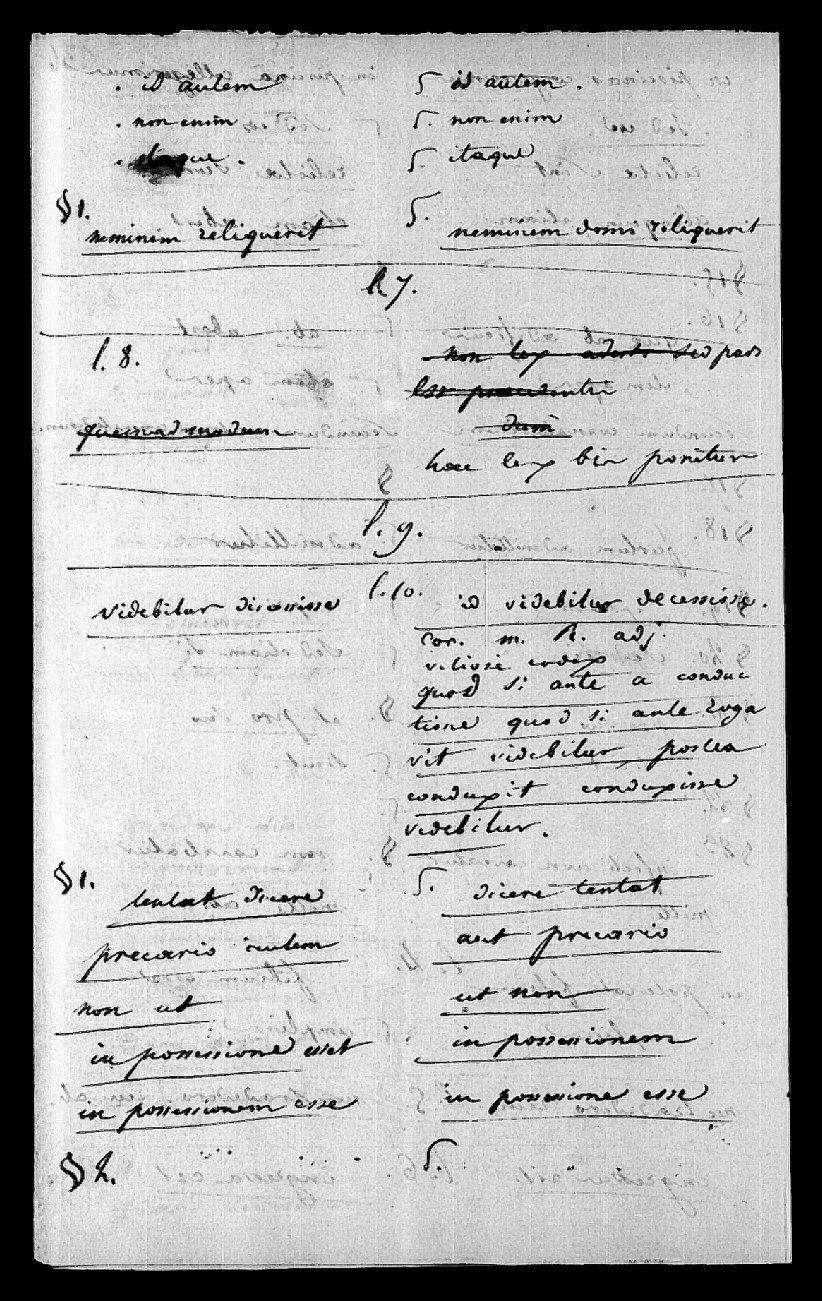 . id autem ʃ id autem .
. non enim ʃ. non enim
. itaque ʃ. itaque
§1. ʃ.
neminem reliquerit neminem domi reliquerit
l. 7.
l. 8. non lex sed pars
quemadmodum dum
haec lex bis ponitur
l. 9.
l. 10.
videbitur discessisse id videbitur decessisse.
cor. m. R. adj.
vitiose codex
quod si ante a conduc
tione quod si ante roga
vit videbitur, postea
conduxit conduxisse
videbitur.
§1. ʃ.
tentat dicere dicere tentat
precario autem aut precario
non ut ut non
in possessione esset in possessionem
in possessionem esse in possessione esse
§ 2. ʃ.